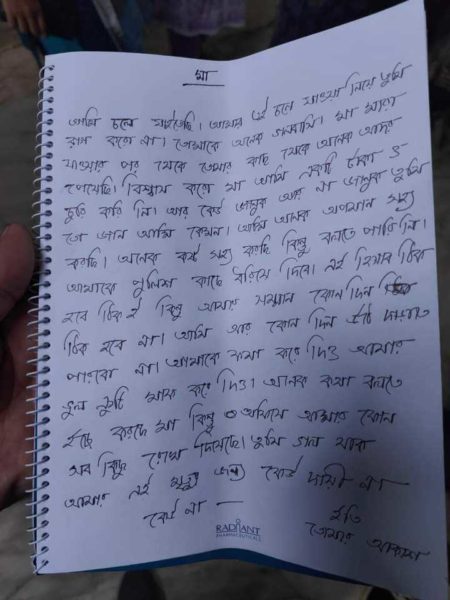 মা
আমি চলে যাইতেছি। আমার এই চলে যাওয়া নিয়ে তুমি
রাগ করো না। তোমাকে অনেক ভালবাসি। মা মারা
যাওয়ার পর থেকে তোমার কাছ থেকে অনেক আদর
পেয়েছি। বিশ্বাস করো মা আমি একটি টাকা ও
চুরি করি নি। আর কেউ জানুক আর না জানুক তুমি
তো জান আমি কেমন। আমি অনেক অপমান সহ্য
করছি। অনেক কষ্ট সহ্য করছি কিন্তু বলতে পারি নি।
আমাকে পুলিশ কাছে ধরিয়ে দিবে। এই হিসাব ঠিক
হবে ঠিক ই কিন্তু আমার সম্মান কোন দিন
ঠিক হবে না। আমি আর কোন দিন উঠে দাড়াতে
পারবো না। আমাকে ক্ষমা করে দিও আমার
ভুল ত্রুটি মাফ করে দিও। অনেক কথা বলতে
ইচ্ছে করছে মা কিন্তু ও অফিসে আমার ফোন
সব কিছু রেখে দিয়েছে। তুমি ভাল থাক
আমার এই মৃত্যু জন্য কেউ দায়ী না
কেউ না —
ইতি
তোমার আকাশ
RADIANT
PHARMACEUTICALS